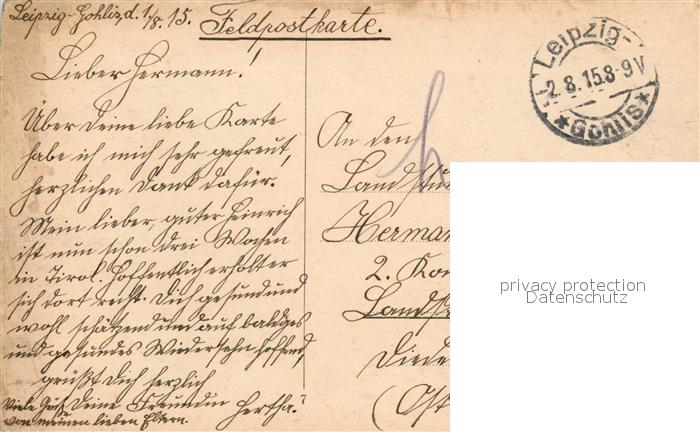 Leipzig-Gohlis, d. 1./8. 15.
Feldpostkarte.
Lieber Hermann!
Über Deine liebe Karte
habe ich mich sehr gefreut,
herzlichen Dank dafür.
Mein lieber, guter Heinrich
ist nun schon drei Wochen
in Tirol. Hoffentlich erholt er
sich dort recht. Dich gesund und
wohl schätzend und auf baldges
und gesundes Wiedersehn hoffend,
grüßt Dich herzlich
Deine Freundin Hertha.
Viele Grüße
von meinen lieben Eltern.
Leipzig-
2.8.15.8-9V
* Gohlis *
An den
Landstu
Herman
2. Kom
Landst
Diede
(Ost
privacy protection
Datenschutz